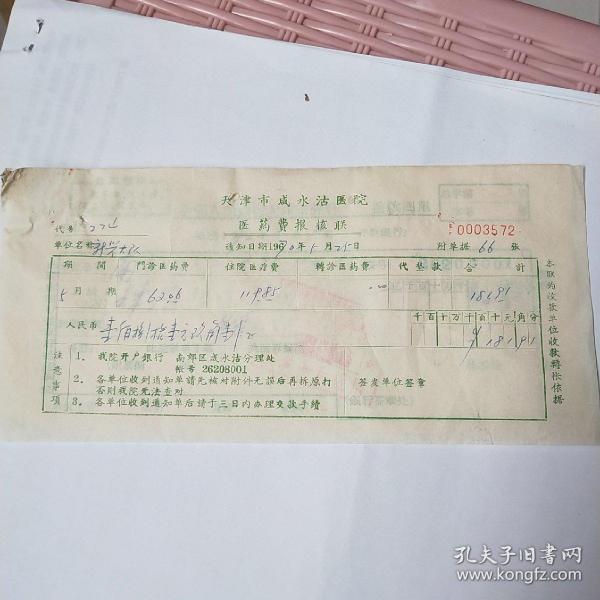 天津市咸水沽医院
医药费报核联
代号
0003572
单位名称 通知日期196 年5月25日 附单据66张
期间 門診医药费 住院医疗费 轉診医药费 代垫款 合計
5月 期 62.06 119.85 181.91
人民币 千百十万千百十元角分
18191
注意事項
1. 我院开户銀行 南郊区咸水沽分理处
帐号 26208001
2. 各单位收到通知单請先核对附件无誤后再拆原打 签发单位签章
否則我院无法查对
3. 各单位收到通知单后请于三日内办理交款手續
本联为收款单位收款轉帐依据
孔夫子旧书网
www.kongfz.com